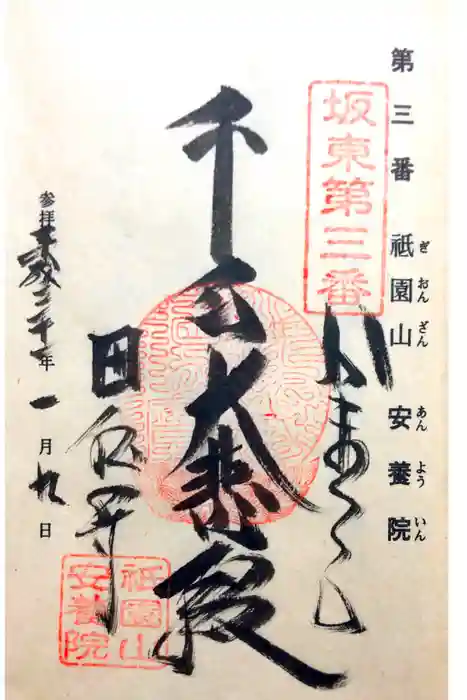 第三番 祇園山 安養院
ぎおんざん あんよういん
坂東第三番
かまくら
千手大悲殿
田代寺
祇園山
安養院
参拝平成三十一年一月九日